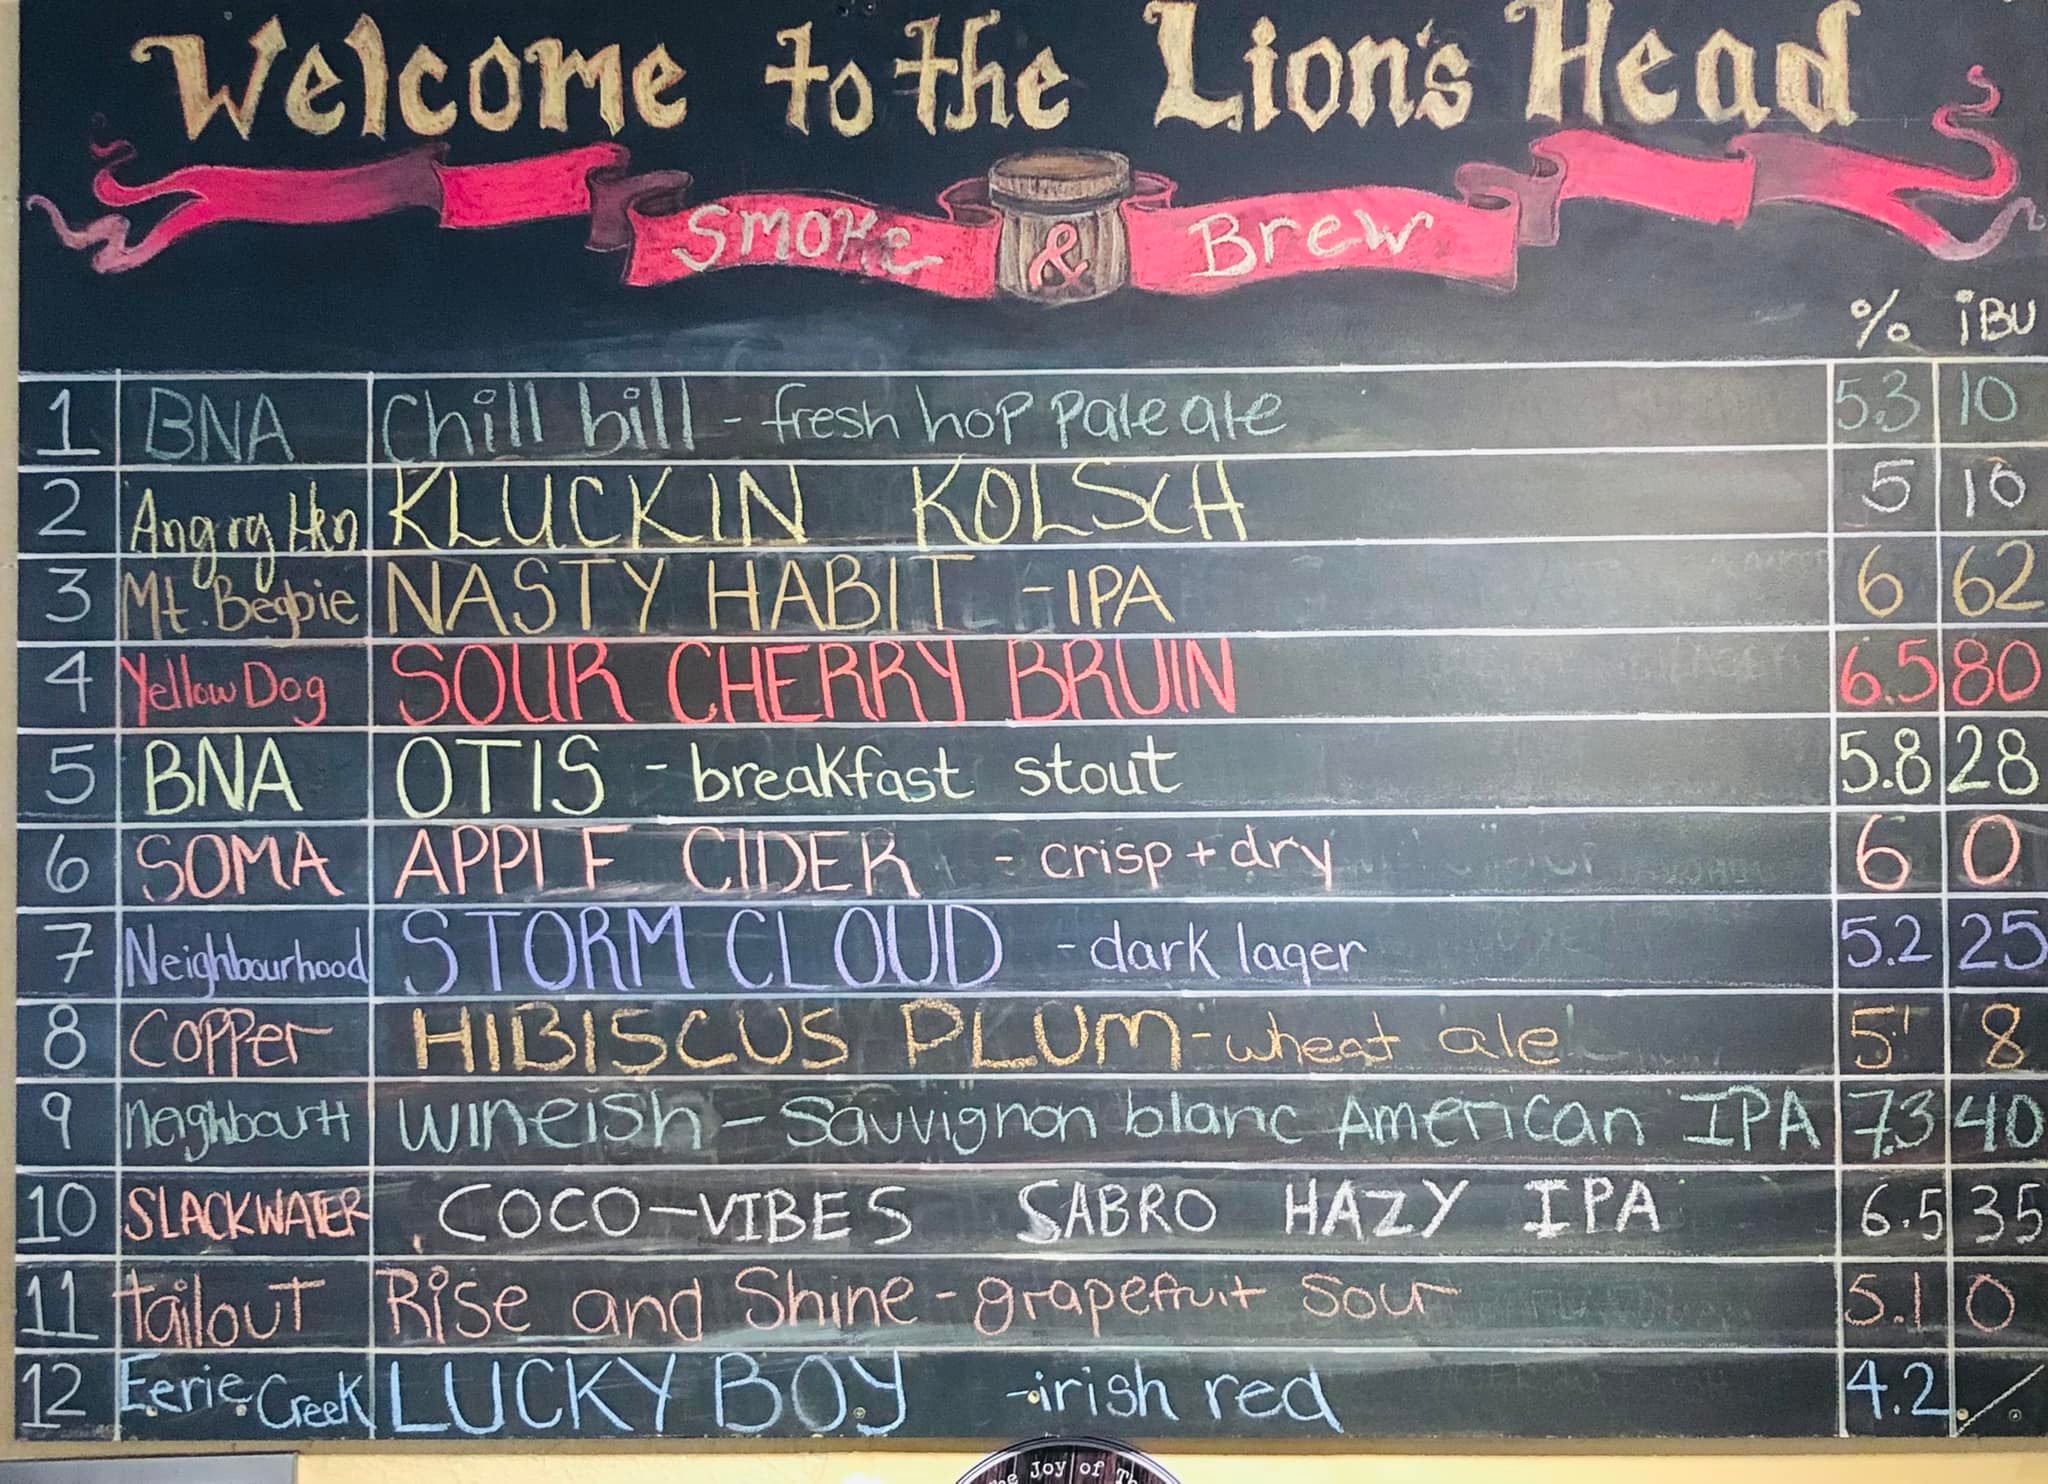 Welcome to the Lion's Head
Smoke & Brew
% iBU
1 BNA Chill bill - fresh hop Pale ale 5.3 10
2 Angry Hen KLUCKIN KOLSCH 5 16
3 Mt. Begbie NASTY HABIT - IPA 6 62
4 Yellow Dog SOUR CHERRY BRUIN 6.5 80
5 BNA OTIS - breakfast stout 5.8 28
6 SOMA APPLE CIDER - crisp + dry 6 0
7 Neighbourhood STORM CLOUD - dark lager 5.2 25
8 Copper HIBISCUS PLUM - wheat ale 5 8
9 NeighbourH wineish - Sauvignon blanc American IPA 7.3 40
10 SLACKWATER COCO-VIBES SABRO HAZY IPA 6.5 35
11 tailout Rise and Shine - grapefruit Sour 5.1 0
12 Eerie Creek LUCKY BOY - irish red 4.2 /
Joy of